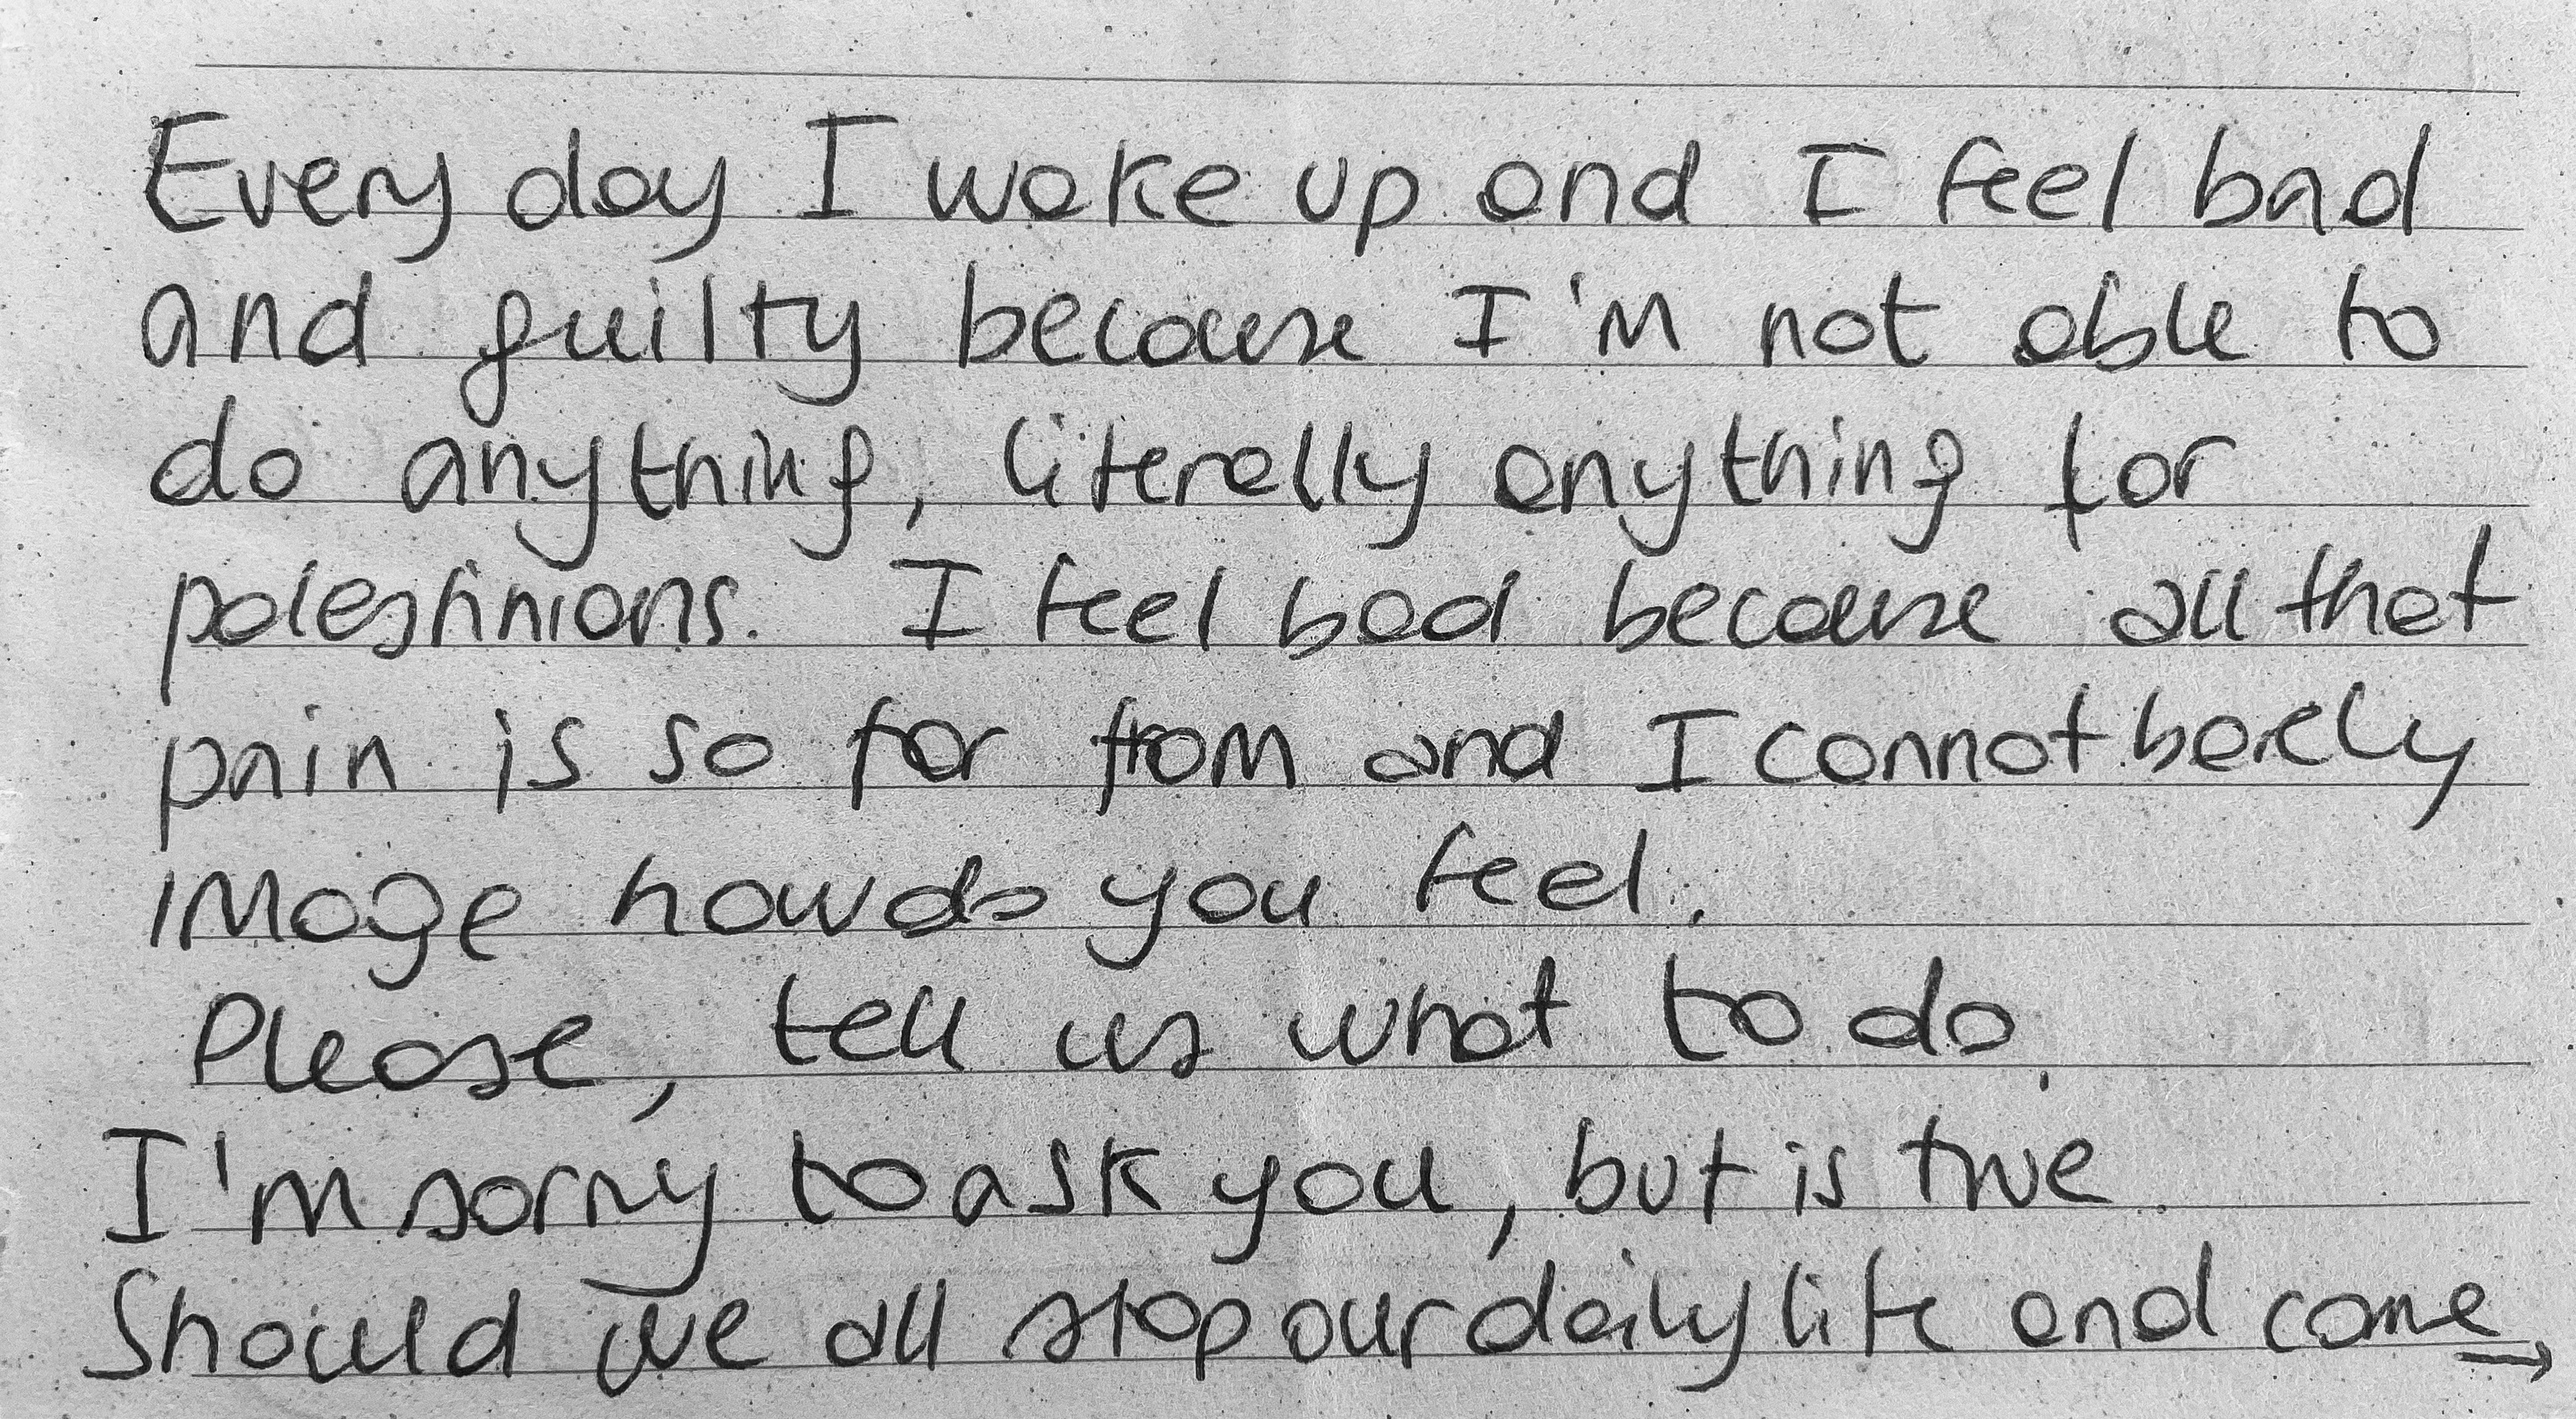 Every day I wake up and I feel bad
and guilty because I'm not able to
do anything, literally anything for
palestinians. I feel bad because all that
pain is so far from and I cannot barely
image how do you feel.
Please, tell us what to do.
I'm sorry to ask you, but is true.
Should we all stop our daily life and come →